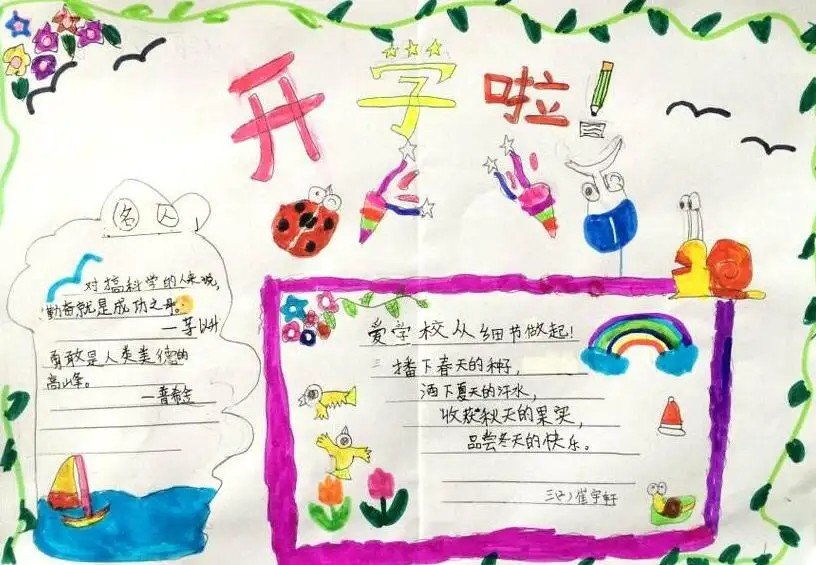 开学啦
名人
对搞科学的人来说,
勤奋就是成功之母。
—茅以升
勇敢是人类美德的
高峰。
—普希金
爱学校从细节做起!
播下春天的种子,
洒下夏天的汗水,
收获秋天的果实,
品尝冬天的快乐。
崔宇轩